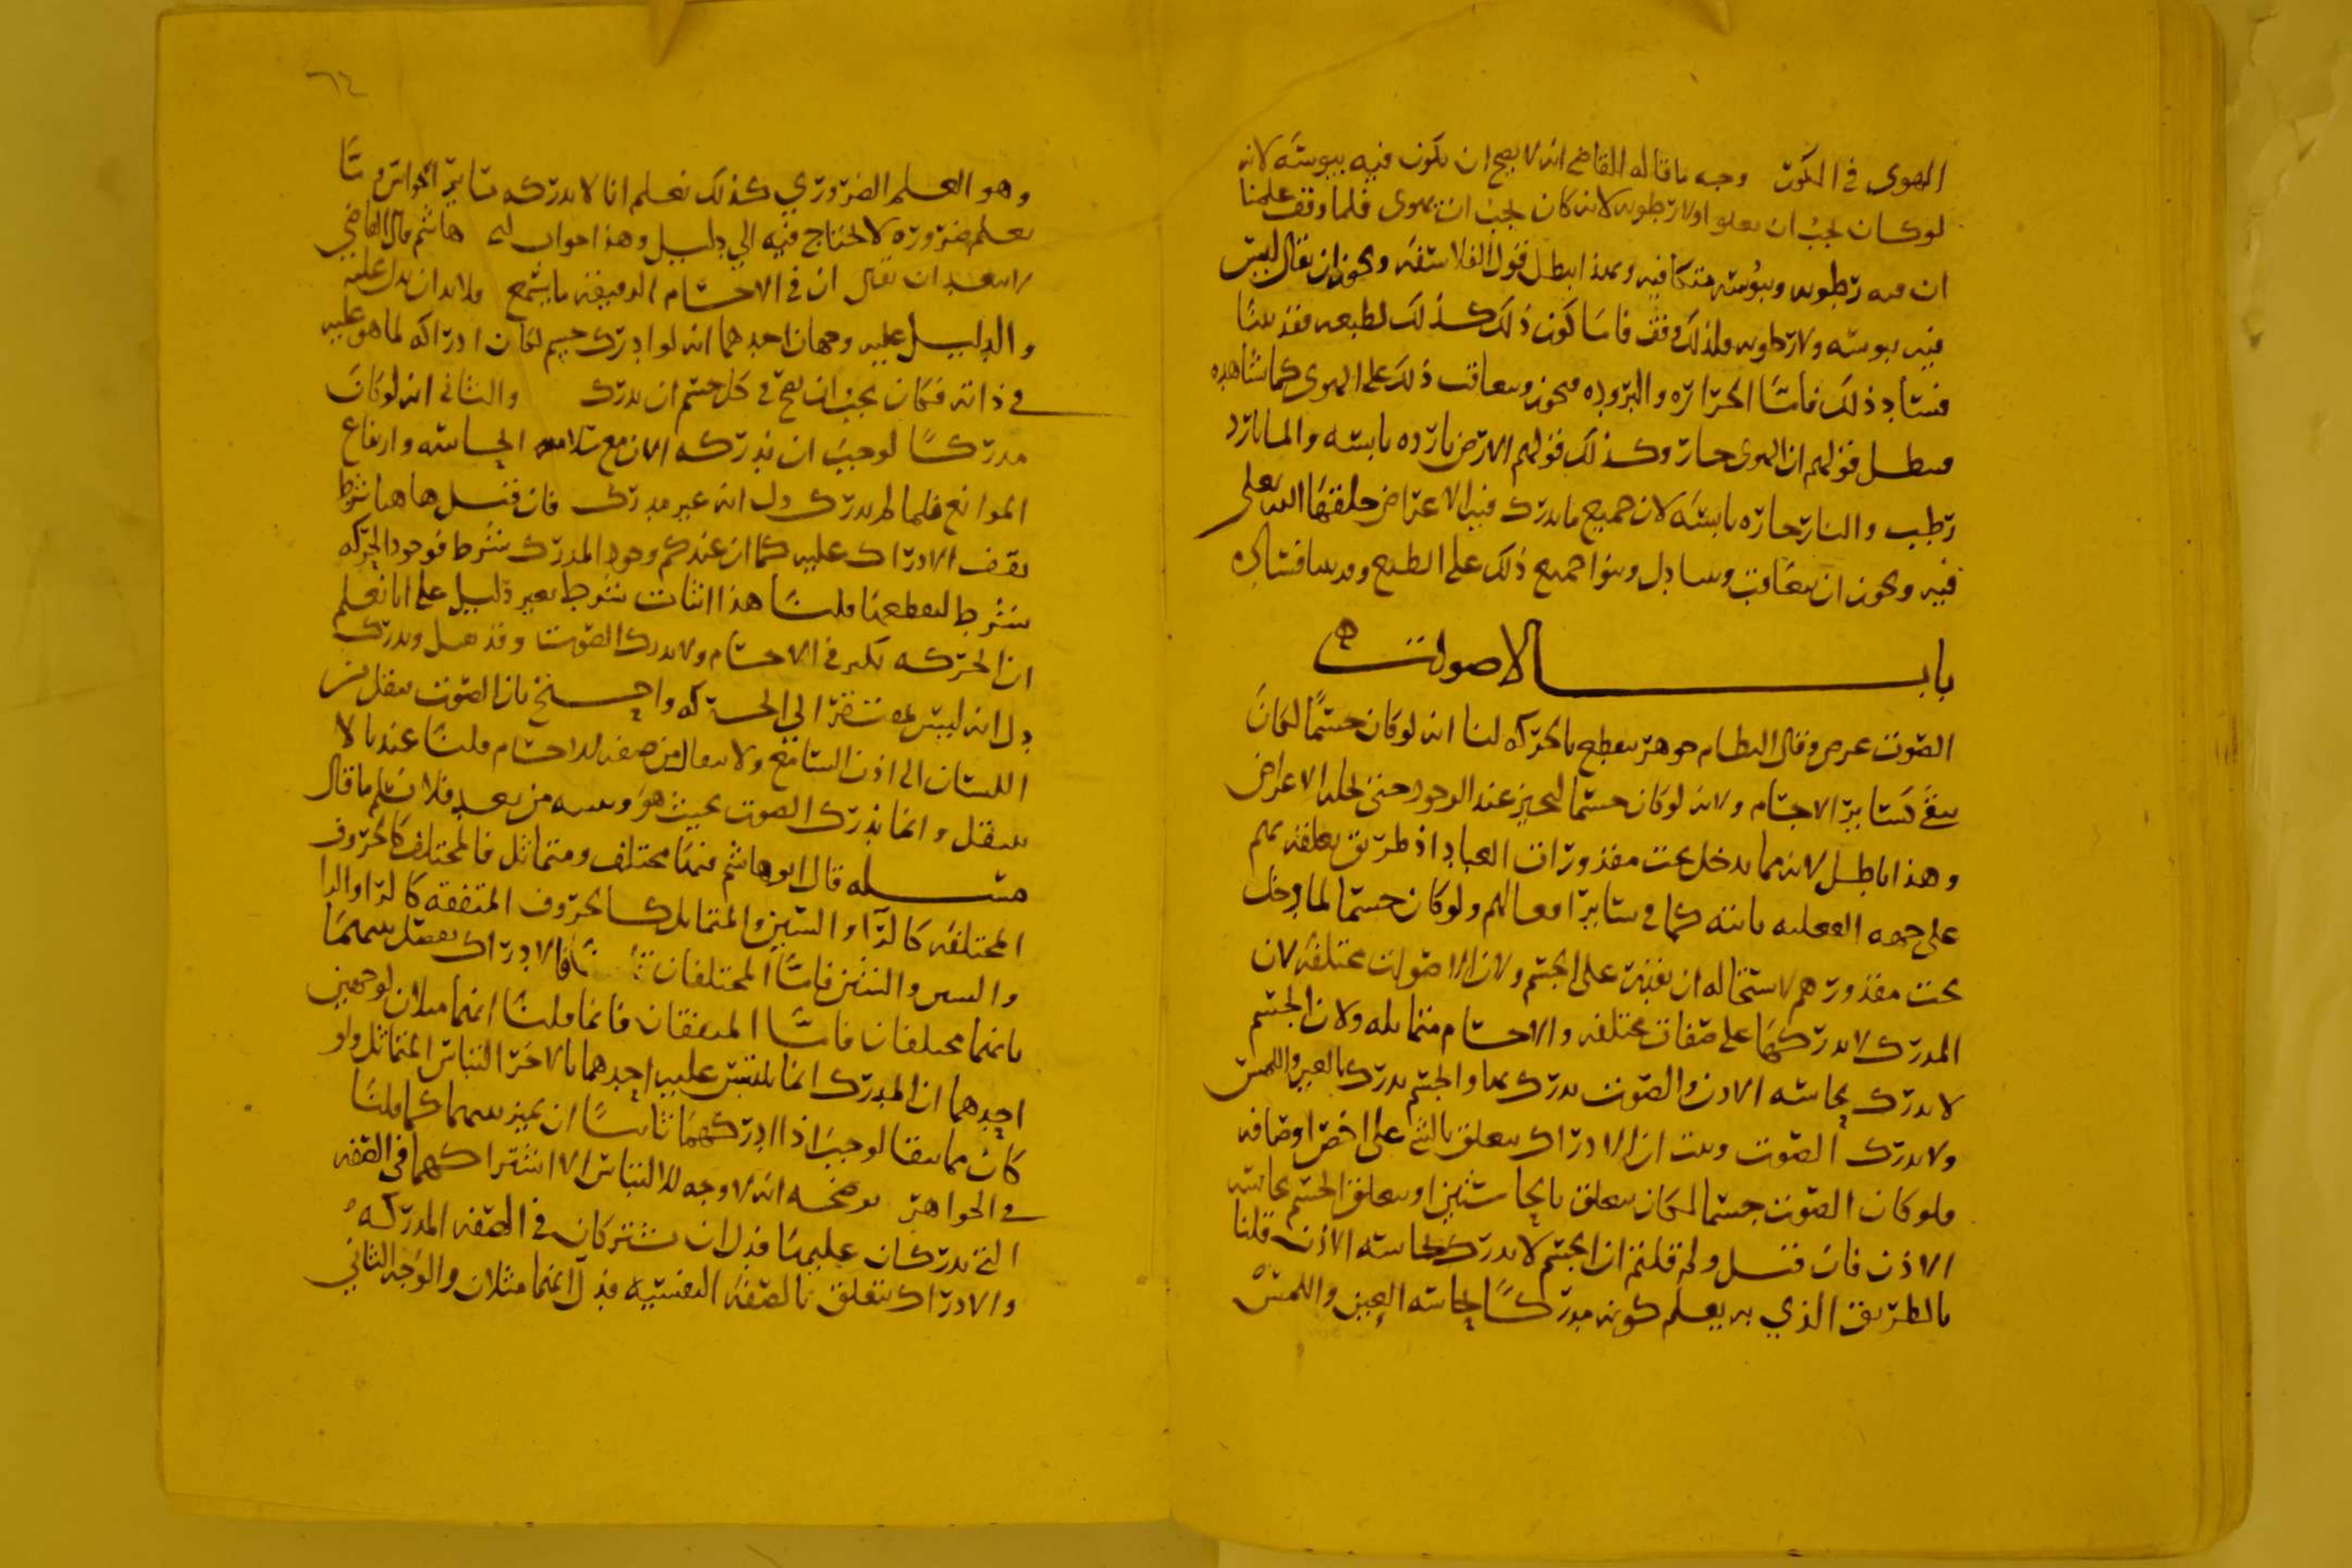 الهوى في الكون وجه ما قاله القاضي انه لا يصح ان يكون فيه يبوسه لانه
لو كان لجب ان يعلو اولا رطوبه لانه كان لجب ان يهوى فلما وقف علمنا
ان فيه رطوبه ويبوسه متكافيه وبهذا يبطل قول الفلاسفه ويجوز ان يقال ليس
فيه يبوسه ولا رطوبه فلذلك وقف فاما كون ذلك كذلك لطبعه فقد بينا
فساد ذلك فاما الحراره والبروده فيجوز وتعاقب ذلك على الهوى كما نشاهده
فبطل قولهم ان الهوى حار وكذلك قولهم الارض بارده يابسه والما بارد
رطب والنار حاره يابسه لان جميع ما يدرك فيه الاعراض خلقها الله تعلى
فيه ويجوز ان يتعاقب وبنوا جميع ذلك على الطبع وقد بينا فساده
باب الاصوات
الصوت عرض وقال النظام جوهر ينقطع بالحركه لنا انه لو كان جسما لكان
يبقى كساير الاجسام ولانه لو كان جسما لتحيز عند الوجود حتى تحله الاعراض
وهذا باطل لانه مما يدخل تحت مقدورات العباد اذ طريق تعلقه بهم
على جهه الفعليه ثابته كما في ساير افعالهم ولو كان جسما لما دخل
تحت مقدورهم لاستحاله ان نقدر على الجسم ولان الاصوات مختلفه لان
المدرك لا يدركها على صفات مختلفه والاجسام متماثله ولان الجسم
لا يدرك بحاسه الاذن والصوت يدرك بها والجسم يدرك بالعين واللمس
ولا يدرك الصوت وثبت ان الادراك يتعلق بالشي على اخص اوصافه
فلو كان الصوت جسما لكان يتعلق بالحاستين او يتعلق الجسم بحاسه
الاذن فان قيل ولم قلتم ان الجسم لا يدرك بحاسه الاذن قلنا
بالطريق الذي به يعلم كونه مدركا بحاسه العين واللمس
٦٤
وهو العلم الضروري كذلك نعلم انا لا ندركه بساير الحواس وما
يعلم ضروره لا تحتاج فيه الي دليل وهذا جواب ابي هاشم قال القاضي
لا يبعد ان يقال ان في الاجسام الدقيقه ما يسمع فلا بد ان يدل عليه
والدليل عليه وجهان احدهما انه لو ادرك جسم لكان ادراكه لما هو عليه
في ذاته فكان يجب ان يصح في كل جسم ان يدرك والثاني انه لو كان
مدركا لوجب ان ندركه الان مع سلامه الحاسه وارتفاع
الموانع فلما لم يدرك دل انه غير مدرك فان قيل ها هنا شرط
يقف الادراك عليه كما ان عندكم وجود المدرك شرط فوجود الحركه
شرط لتقطعها قلنا هذا اثبات شرط بغير دليل على انا نعلم
ان الحركه تكثر في الاجسام ولا يدرك الصوت وقد تقل ويدرك
دل انه ليس بمفتقر الى الحركه واحتج بان الصوت ينتقل من
اللسان الى اذن السامع ولا يقال من صفه الاجسام قلنا عندنا لا
ينتقل وانما يدرك الصوت بحيث هو من بعد فلا نسلم ما قال
مسله قال ابو هاشم منها مختلف ومتماثل فالمختلف كالحروف
المختلفه كالرا والسين والمتماثل كالحروف المتفقه كالرا والرا
والسين والسين فاما المختلفان فالادراك يفصل بينهما
بانهما مختلفان فاما المتفقان فانما قلنا انهما مثلان لوجهين
احدهما ان المدرك انما يلتبس عليه احدهما بالاخر التباس المتماثل ولو
كان مما يبقا لوجب اذا ادركهما ثانيا ان يميز بينهما كما قلنا
في الجواهر يوضحه انه لا وجه للالتباس الا اشتراكهما في الصفه
التي يدركان عليها فدل ان يشتركان في الصفه المدركه
والادراك يتعلق بالصفه النفسيه فدل انهما مثلان والوجه الثاني